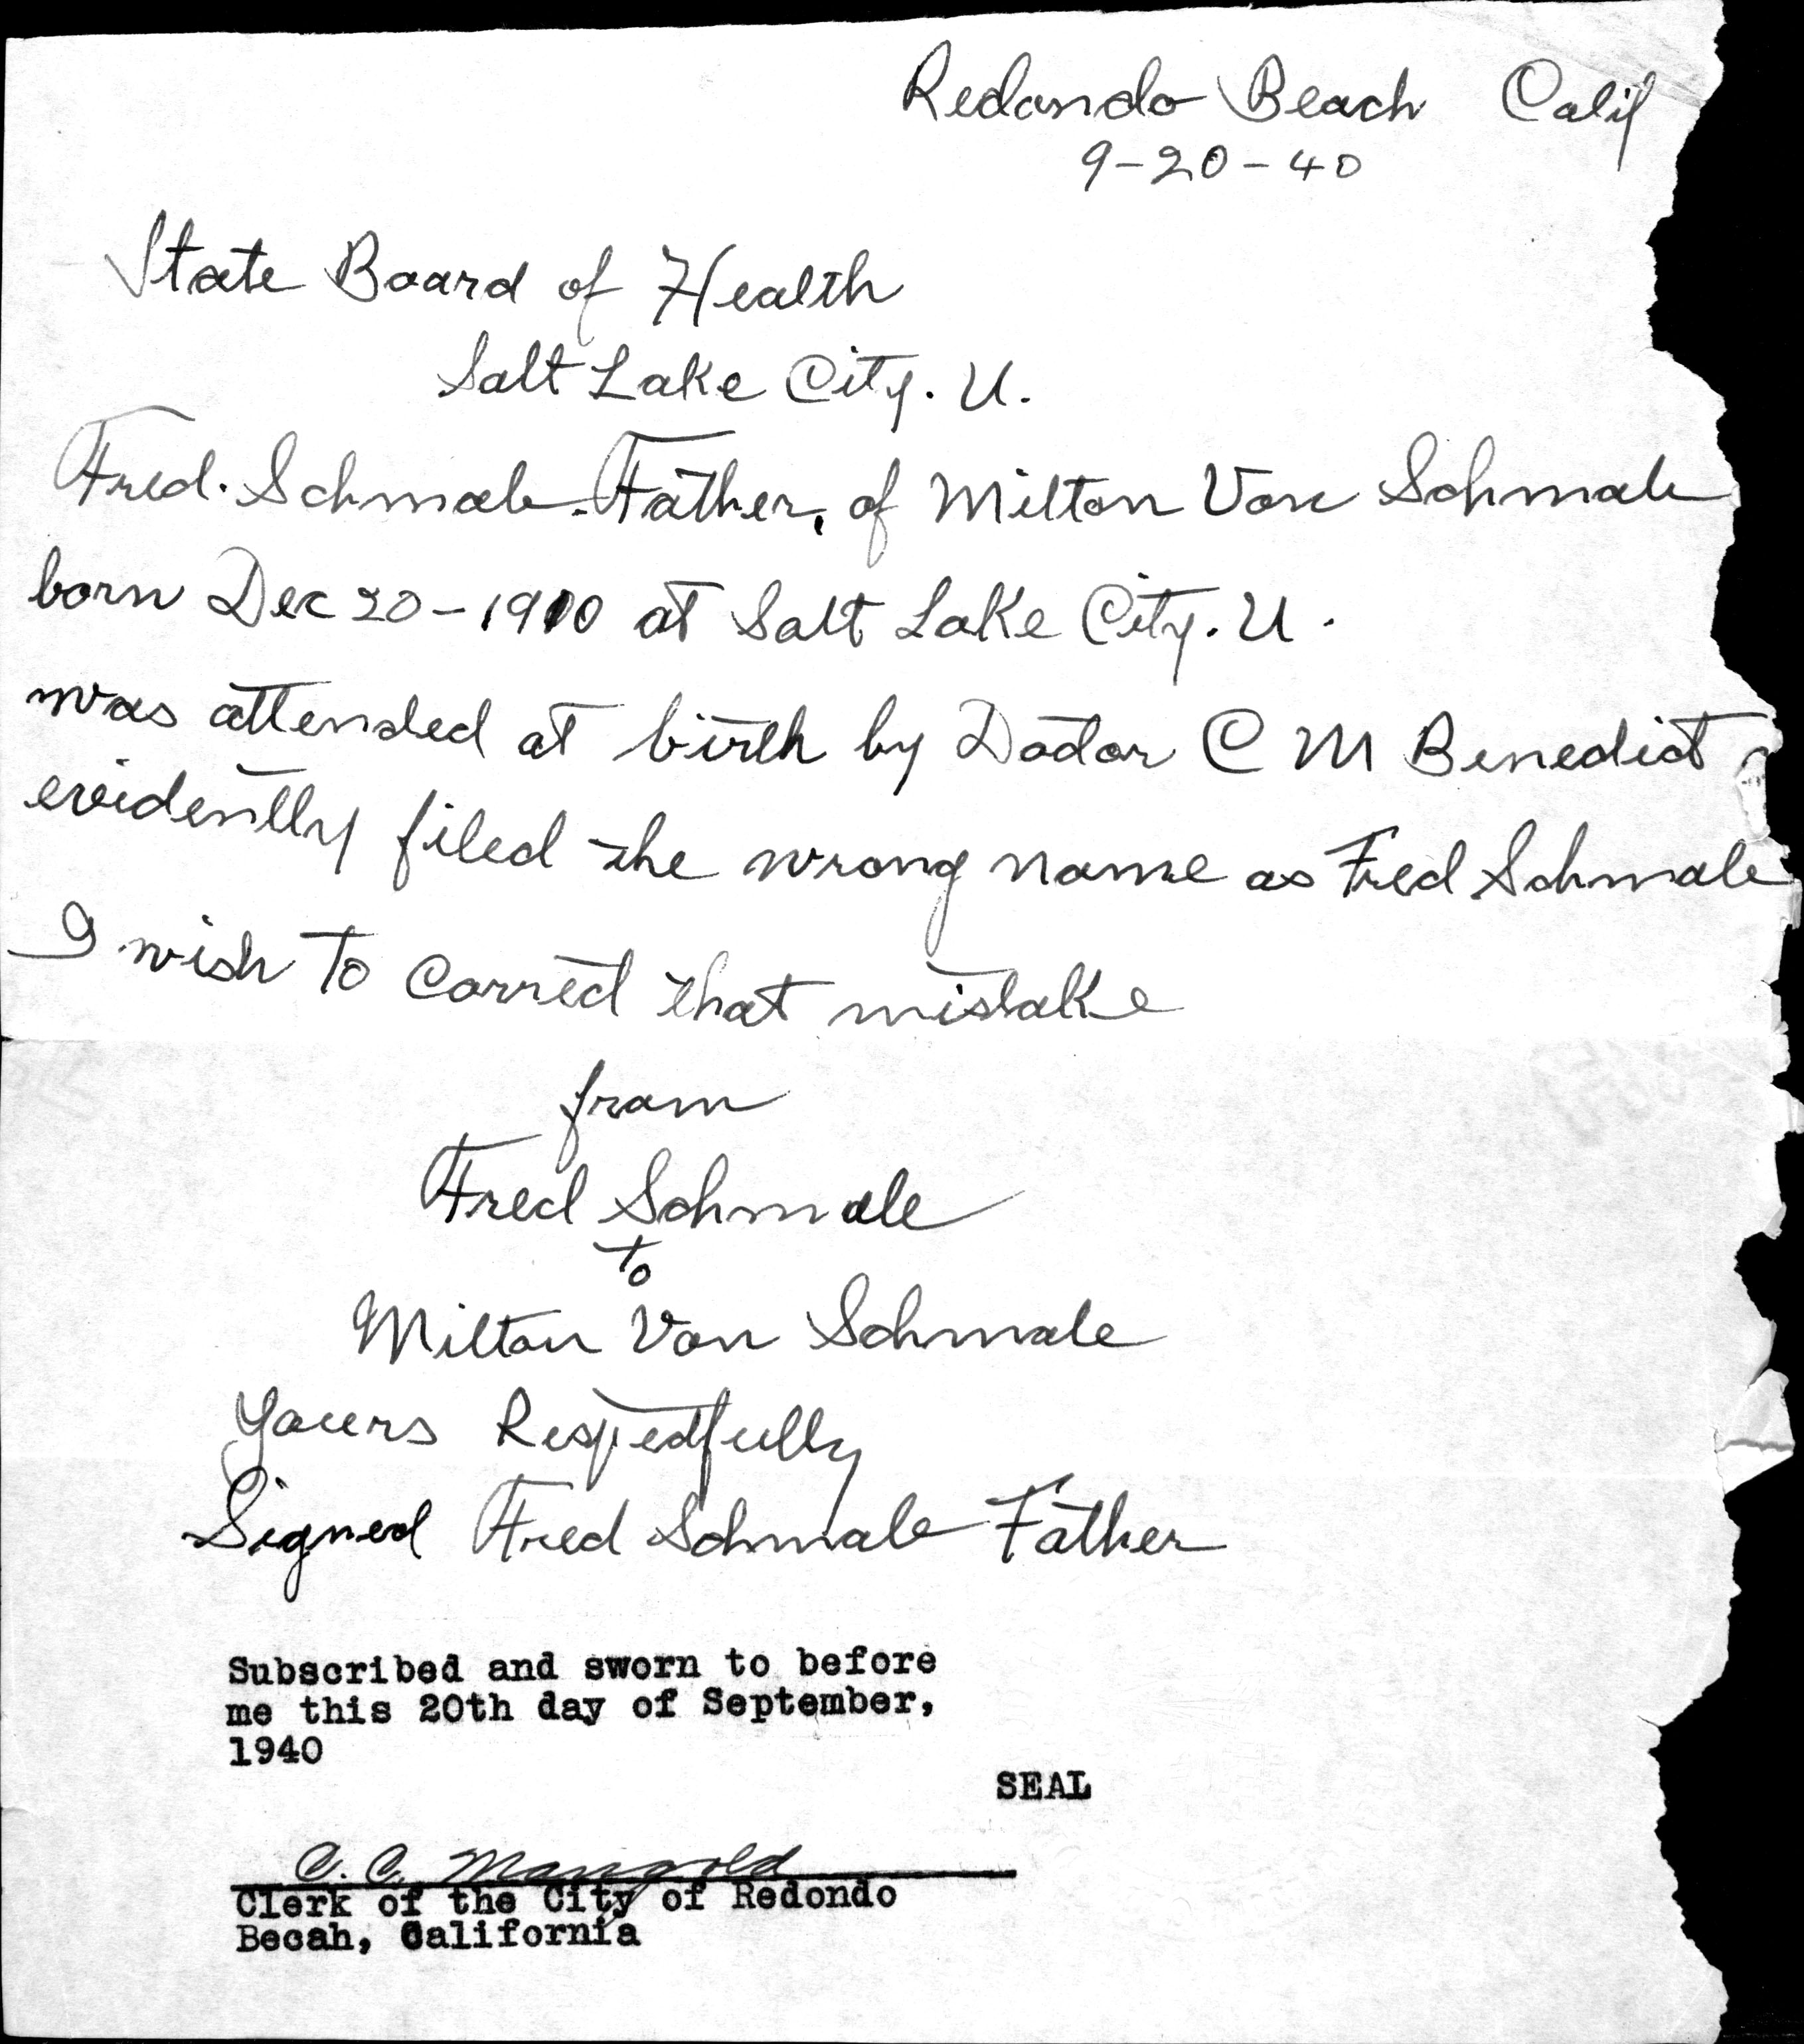 Redondo Beach Calif
9-20-40
State Board of Health
Salt Lake City. U.
Fred. Schmale. Father, of Milton Von Schmale
born Dec 20-1910 at Salt Lake City. U.
was attended at birth by Doctor C M Benedict
evidently filed the wrong name as Fred Schmale
I wish to correct that mistake
from
Fred Schmale
To
Milton Von Schmale
Yours Respectfully
Signed Fred Schmale Father
Subscribed and sworn to before
me this 20th day of September,
1940
SEAL
C. C. Mangold
Clerk of the City of Redondo
Becah, California